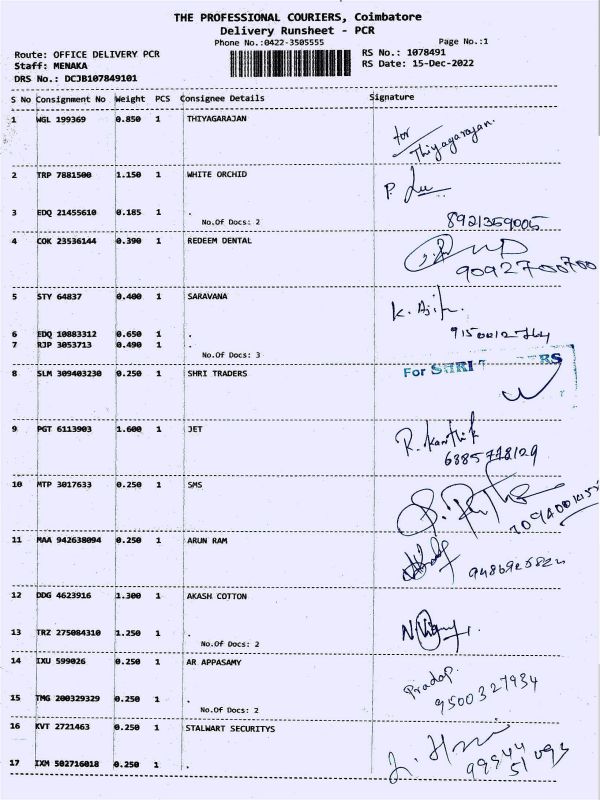 THE PROFESSIONAL COURIERS, Coimbatore
Delivery Runsheet - PCR
Phone No.:0422-3505555
Page No.:1
Route: OFFICE DELIVERY PCR
RS No.: 1078491
Staff: MENAKA
RS Date: 15-Dec-2022
DRS No.: DCJB107849101
S No Consignment No Weight PCS Consignee Details Signature
1 WGL 199369 0.850 1 THIYAGARAJAN
for
Thiyagarajan.
2 TRP 7881500 1.150 1 WHITE ORCHID
P.
3 EDQ 21455610 0.185 1 .
No.Of Docs: 2
8921359005
4 COK 23536144 0.390 1 REDEEM DENTAL
9092700700
5 STY 64837 0.400 1 SARAVANA
K.
6 EDQ 10883312 0.650 1 .
7 RJP 3053713 0.490 1 .
No.Of Docs: 3
8 SLM 309403230 0.250 1 SHRI TRADERS
For SHRI
9 PGT 6113903 1.600 1 JET
R. Karthik
6385778129
10 MTP 3017633 0.250 1 SMS
11 MAA 942638094 0.250 1 ARUN RAM
12 DDG 4623916 1.300 1 AKASH COTTON
13 TRZ 275084310 1.250 1 .
No.Of Docs: 2
14 IXU 599026 0.250 1 AR APPASAMY
Pradap.
9500327934
15 TMG 200329329 0.250 1 .
No.Of Docs: 2
16 KVT 2721463 0.250 1 STALWART SECURITYS
99944
51 093
17 IXM 502716018 0.250 1 .